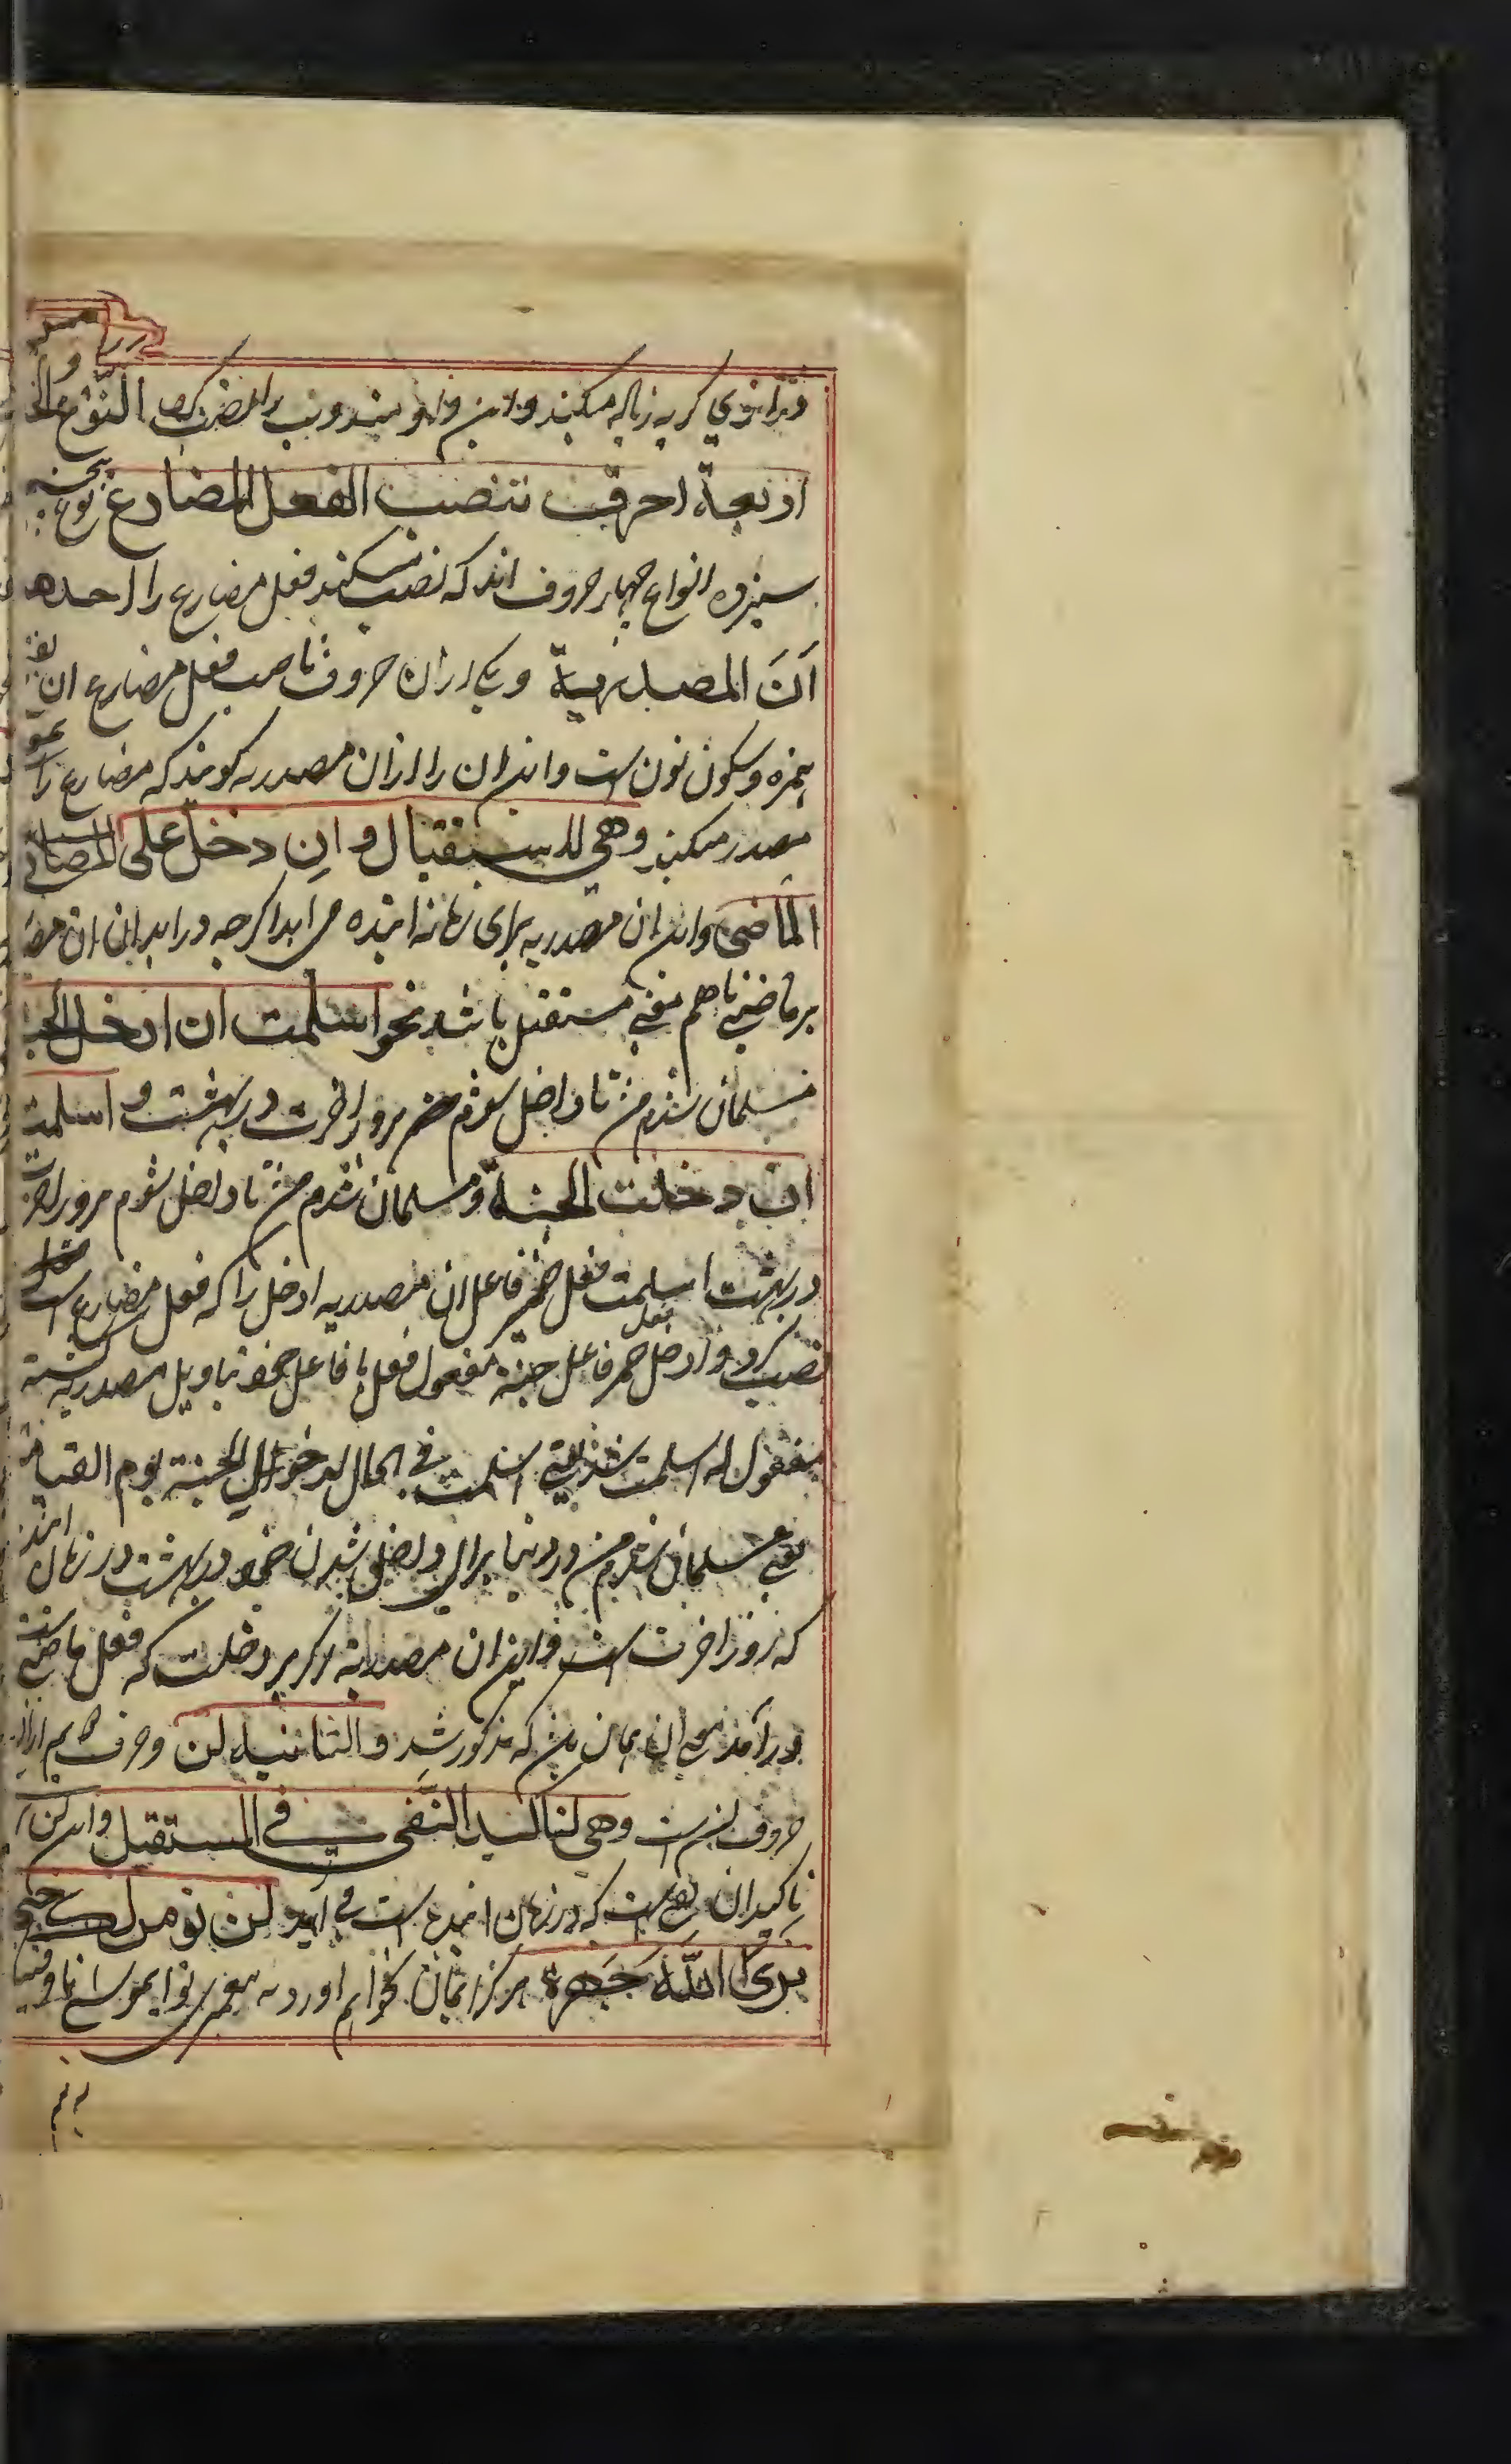 النوع الخا
اربعة احرف تنصب الفعل المضارع نوع پنجم
سیزده انواع چهار حروف اند که نصب میکنند فعل مضارع را احدها
اَنَ المصدریة و یکی ازان حروف ناصب فعل مضارع ان
همزه و سکون نون است و این ان را ازان مصدریه کویند که مضارع را
مصدر میکند وهی للاستقبال وان دخل علی المضا
الماضی و این ان مصدریه برای زمانه اینده می اید اکرچه در اید این ان
بر ماضی تا هم معنی مستقبل باشد نحو اسلمت ان ادخل الجنة
مسلمان شدم من تا داخل شوم من بروز اخرت در بهشت و اسلمت
ان دخلت الجنة و مسلمان شدم من تا داخل شوم بروز اخرت
در بهشت اسلمت فعل ضمیر فاعل ان مصدریه ادخل را که فعل مضارع است
نصب کرد و ادخل فعل ضمیر فاعل جنة مفعول فعل با فاعل خود بتاویل مصدریه کشته
مفعول له اسلمت شد یعنی اسلمت فی الحال لدخول الجنة یوم القیامة
یعنی مسلمان شدم من در دنیا برای داخل شدن خود در بهشت در زمان اینده
که روز اخرت است و این ان مصدریه اکر بر دخلت که فعل ماضی است
در آمد معنی ان همان من که مذکور شد والثانیة لن و حرف دویم ازان
حروف لن است وهی لتاکید النفی فی المستقبل و این لن
تاکید ان نفی است که در زمان اینده است می اید لن نومن لک حتی
نری الله جهرة هرکز ایمان نخواهیم اورد به پیغمبری تو ای موسی تا وقتیکه
نه بینم